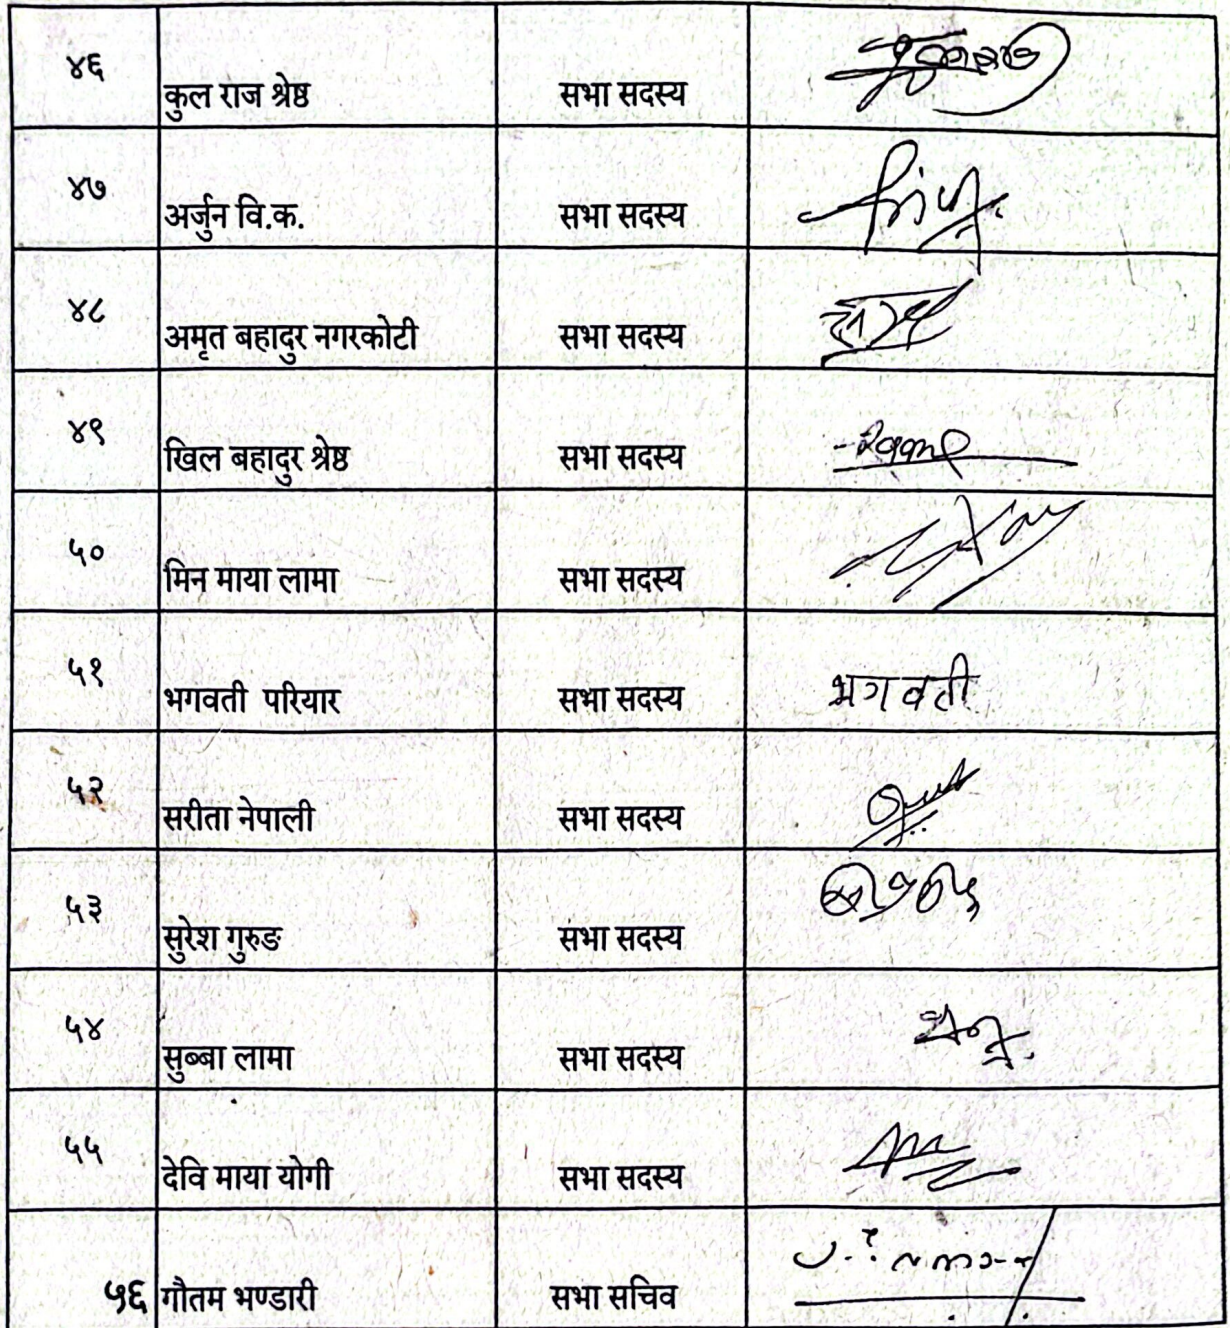 ४६ कुल राज श्रेष्ठ सभा सदस्य
४७ अर्जुन वि.क. सभा सदस्य
४८ अमृत बहादुर नगरकोटी सभा सदस्य
४९ खिल बहादुर श्रेष्ठ सभा सदस्य
५० मिन माया लामा सभा सदस्य
५१ भगवती परियार सभा सदस्य भगवती
५२ सरीता नेपाली सभा सदस्य
५३ सुरेश गुरुङ सभा सदस्य
५४ सुब्बा लामा सभा सदस्य
५५ देवि माया योगी सभा सदस्य
५६ गौतम भण्डारी सभा सचिव